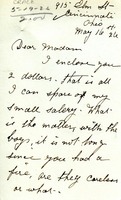 5-19-26
2.00
915 Elm St
Cincinnati
Ohio
May 16 26
Dear Madam
I enclose you
2 dollars. that is all
I can spare of my
small salery. What
is the matter with the
boys, it is not long
since you had a
fire, are they careless
or what.